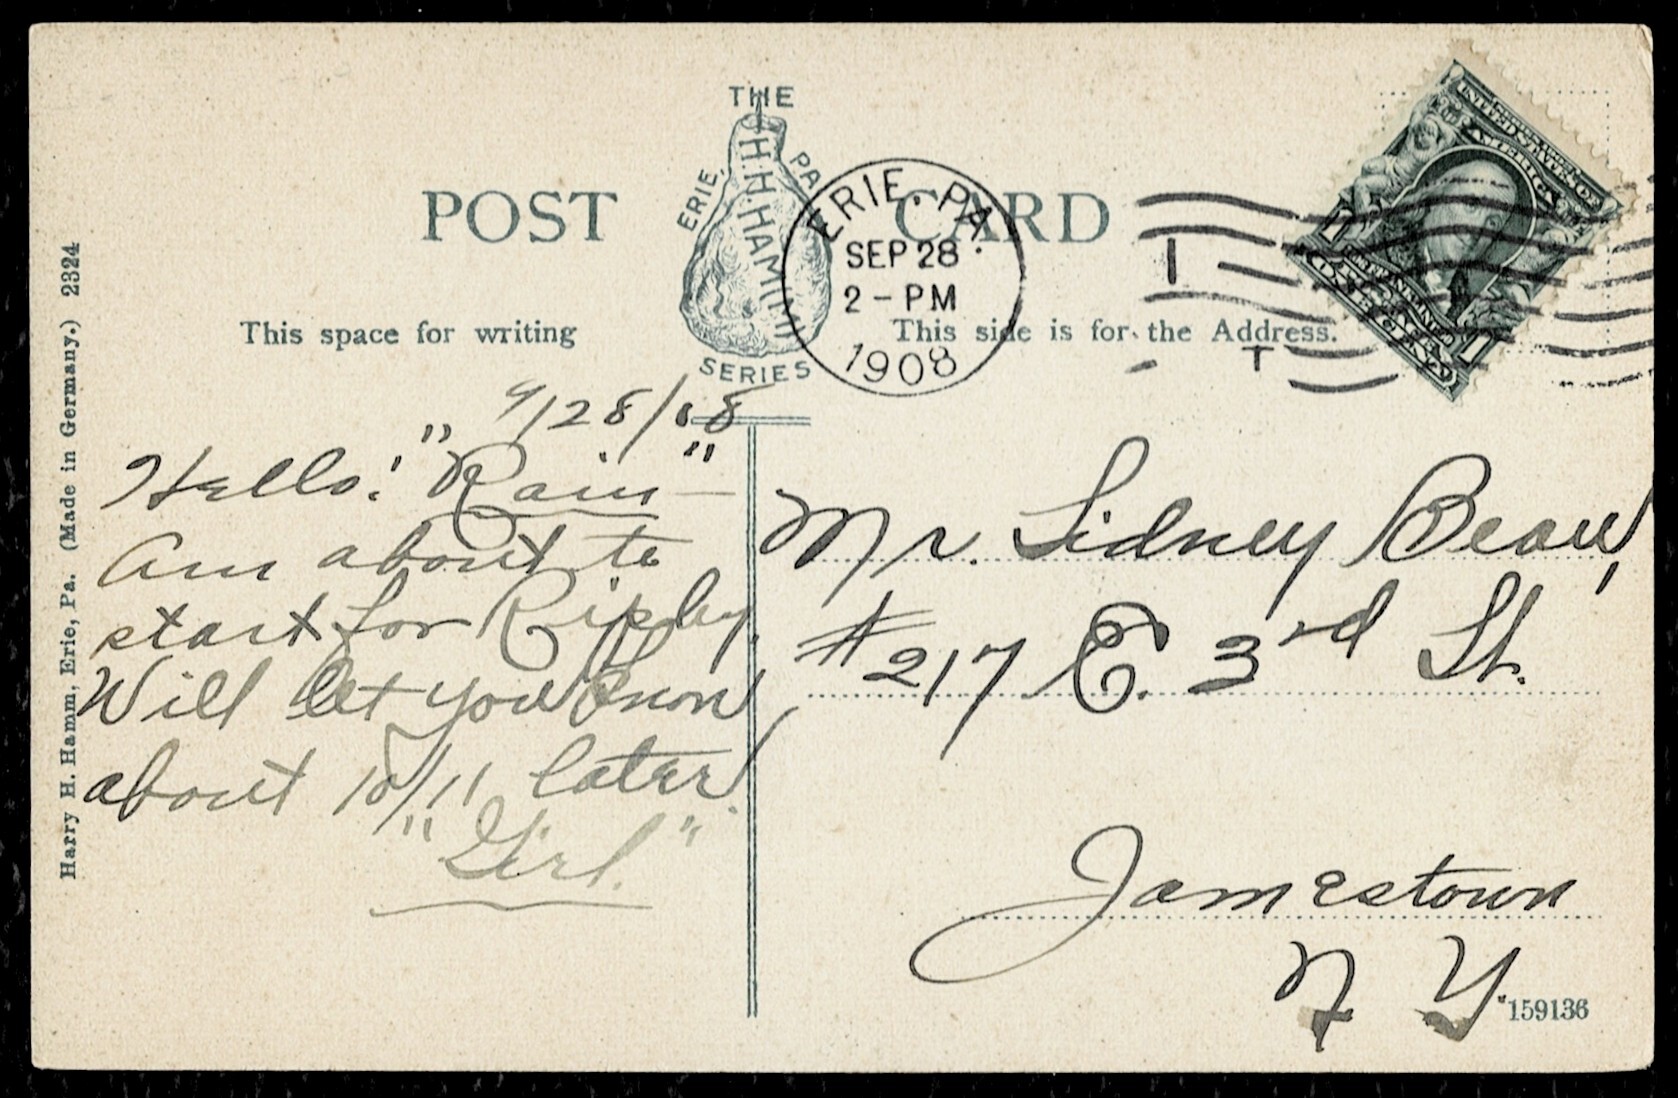 THE
H.H.HAMM
ERIE, PA
SERIES
POST CARD
ERIE. PA.
SEP 28
2 - PM
1908
This space for writing
This side is for the Address.
Harry H. Hamm, Erie, Pa. (Made in Germany.) 2324
9/28/08
Hello! "Rain" —
Am about to
start for Ripley.
Will let you know
about 10/11 later.
"Girl."
Mr. Sidney Bean,
# 217 E. 3rd St.
Jamestown
N Y.
159136